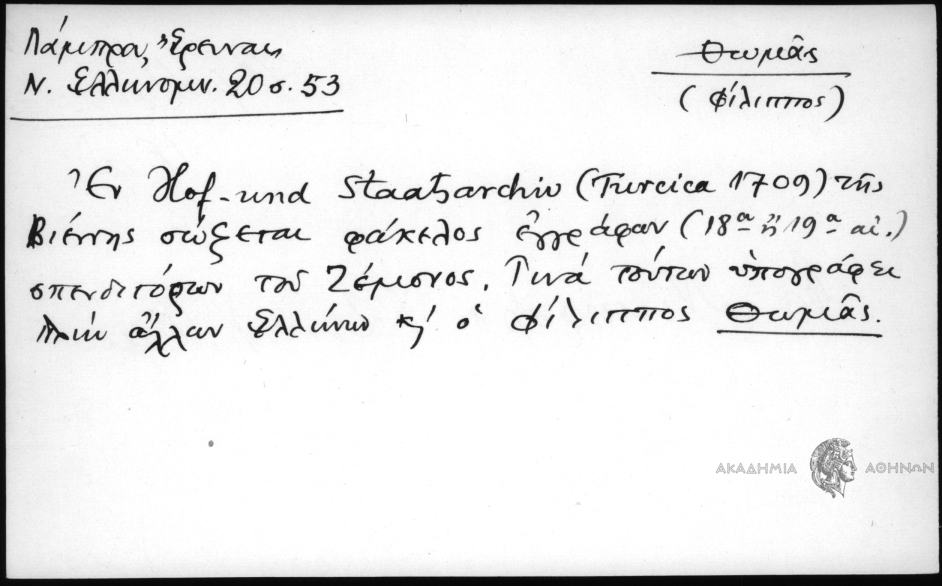 Λάμπρου, Ἔρευναι
Ν. Ἑλληνομν. 20 σ. 53
Θωμᾶς
(Φίλιππος)
Ἐν Hof- und Staatsarchiv (Turcica 1709) τῆς
Βιέννης σώζεται φάκελος ἐγγράφων (18ᵃ ἢ 19ᵃ αἰ.)
σπενδιτόρων τοῦ Ζέμονος. Τινά τούτων ὑπογράφει
πλὴν ἄλλων Ἑλλήνων κ ὁ Φίλιππος Θωμᾶς.
ΑΚΑΔΗΜΙΑ ΑΘΗΝΩΝ